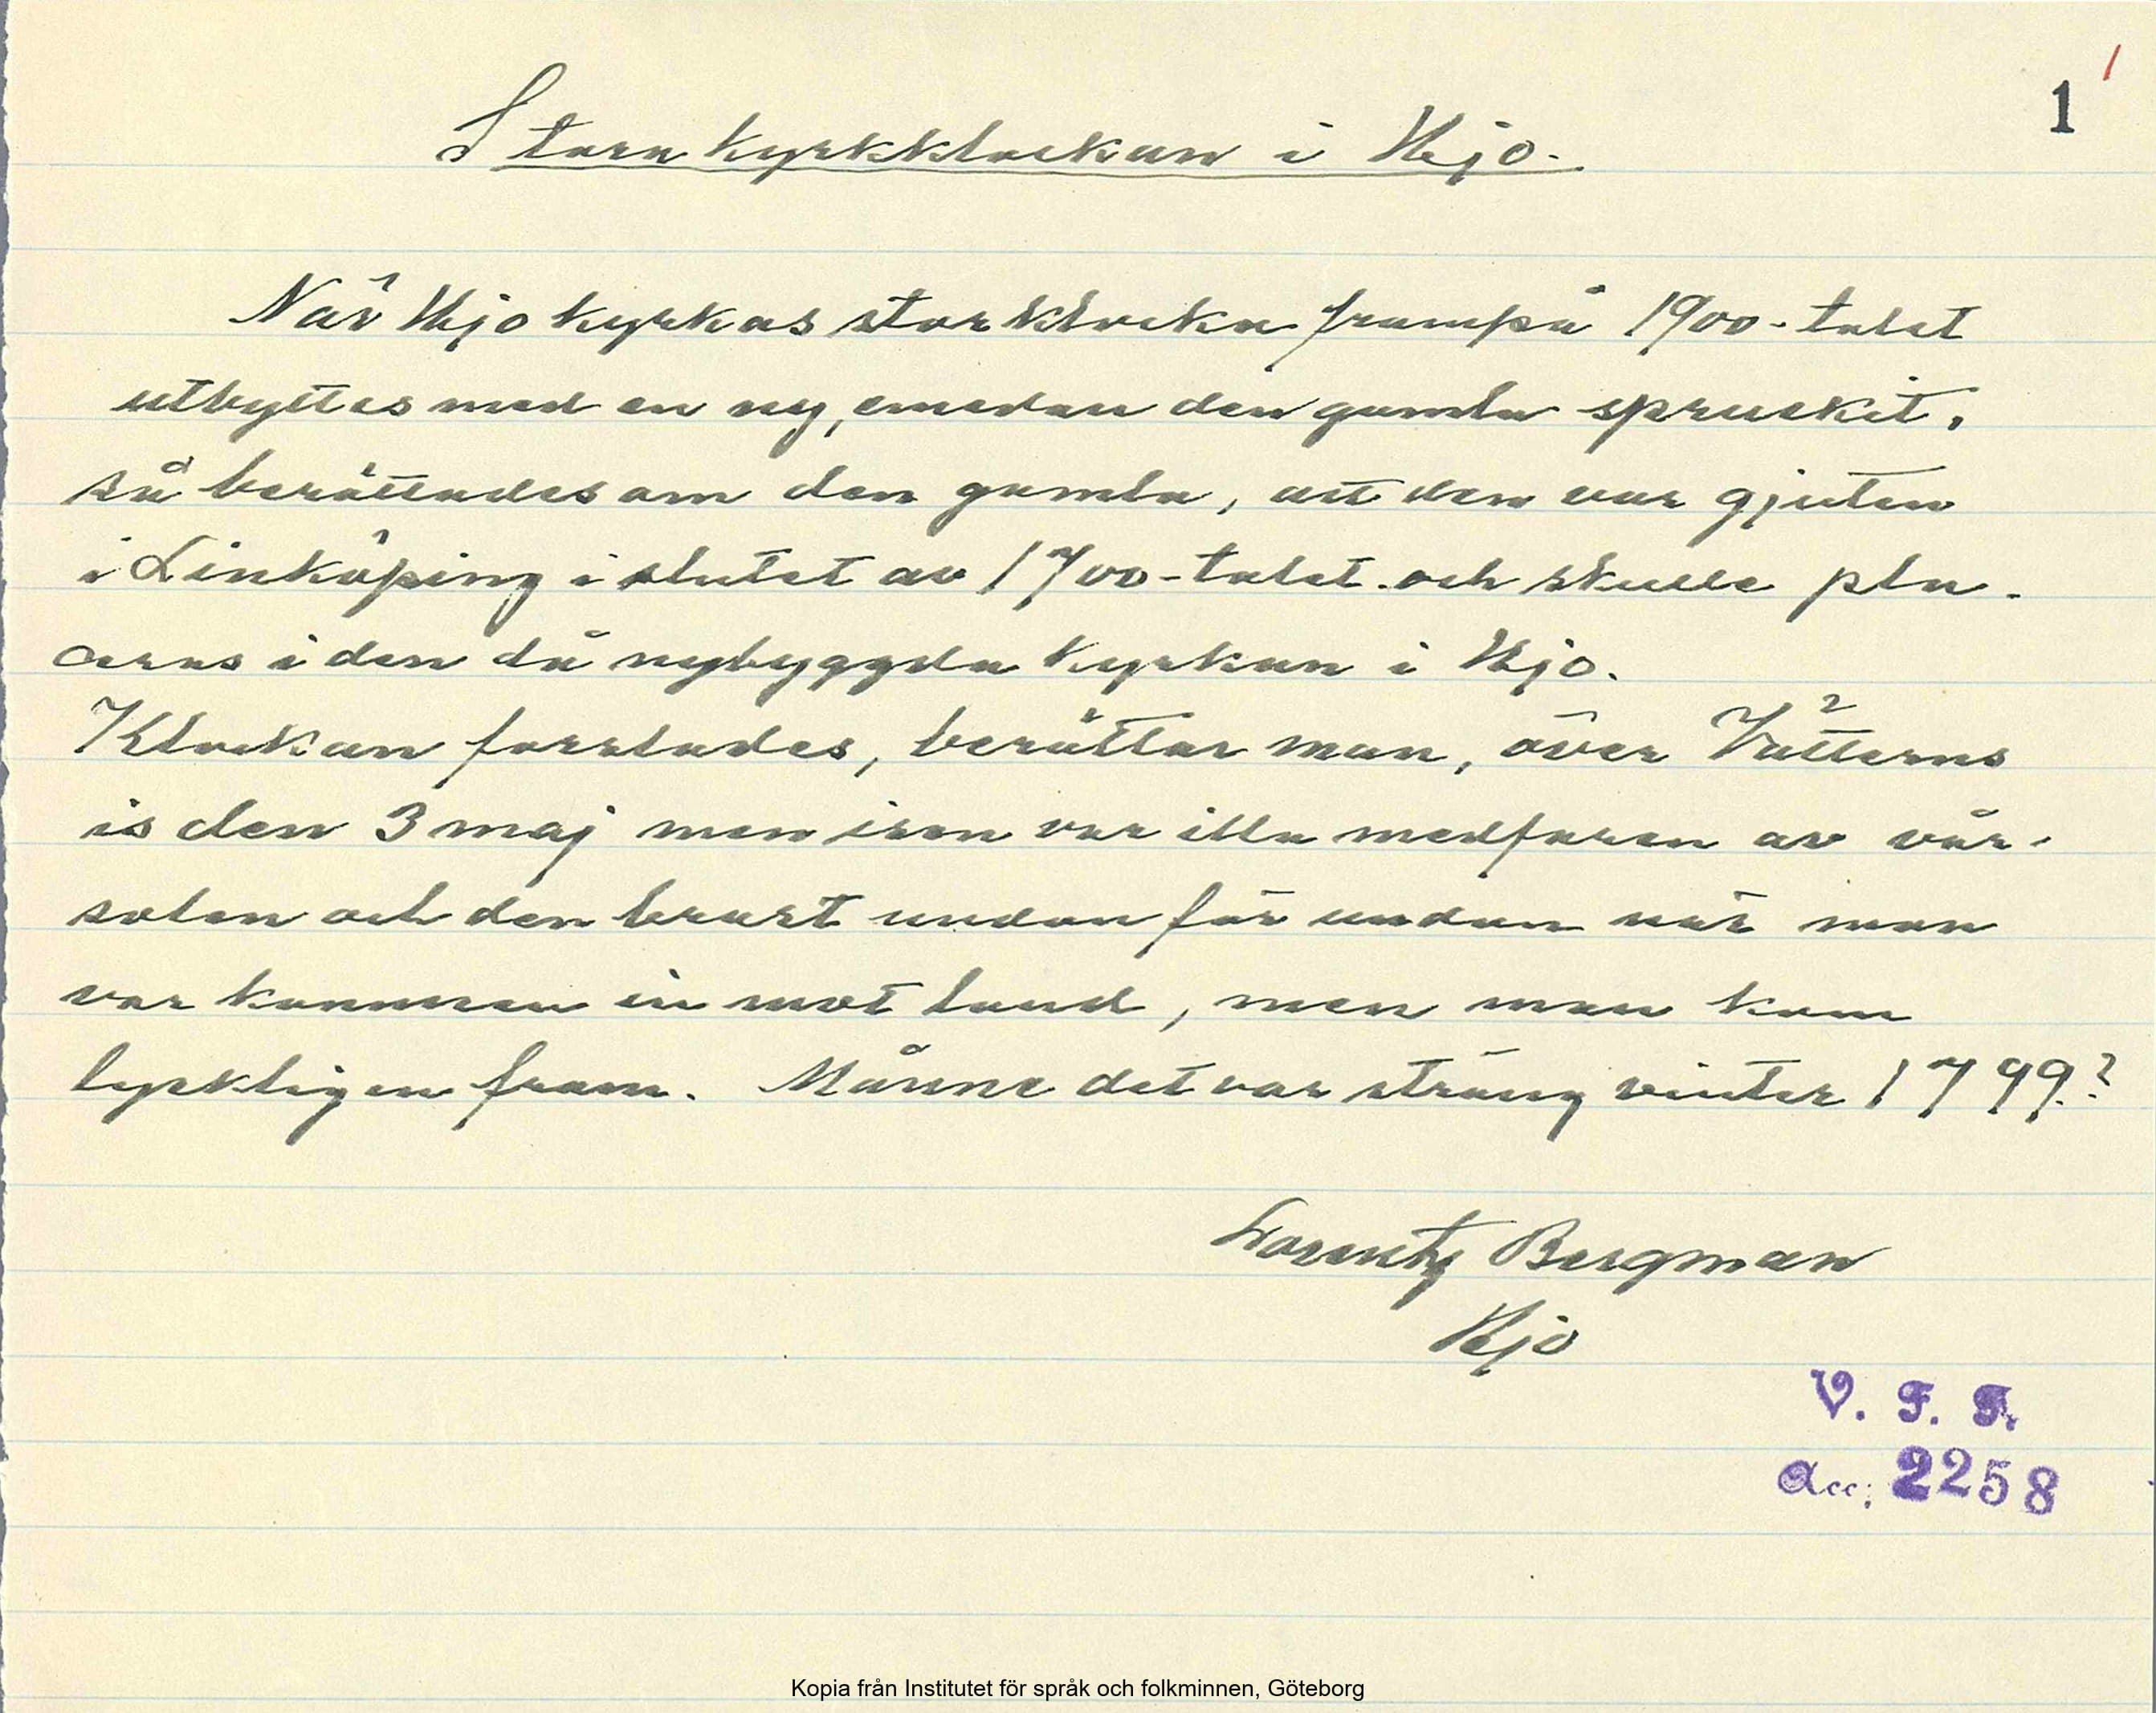 1
1
Stora kyrkklockan i Hjo.
När Hjo kyrkas storklocka frampå 1900-talet
utbyttes med en ny, emedan den gamla spruckit,
så berättades om den gamla, att den var gjuten
i Linköping i slutet av 1700-talet och skulle pla-
ceras i den då nybyggda kyrkan i Hjo.
Klockan forslades, berättar man, över Vätterns
is den 3 maj men isen var illa medfaren av vår-
solen och den brast undan för undan när man
var kommen in mot land, men man kom
lyckligen fram. Månne det var sträng vinter 1799?
Lorentz Bergman
Hjo
V. F. F.
Acc. 2258
Kopia från Institutet för språk och folkminnen, Göteborg